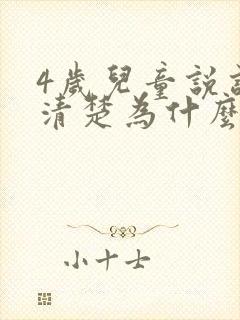 4歲兒童說
清楚為什麼
小十士